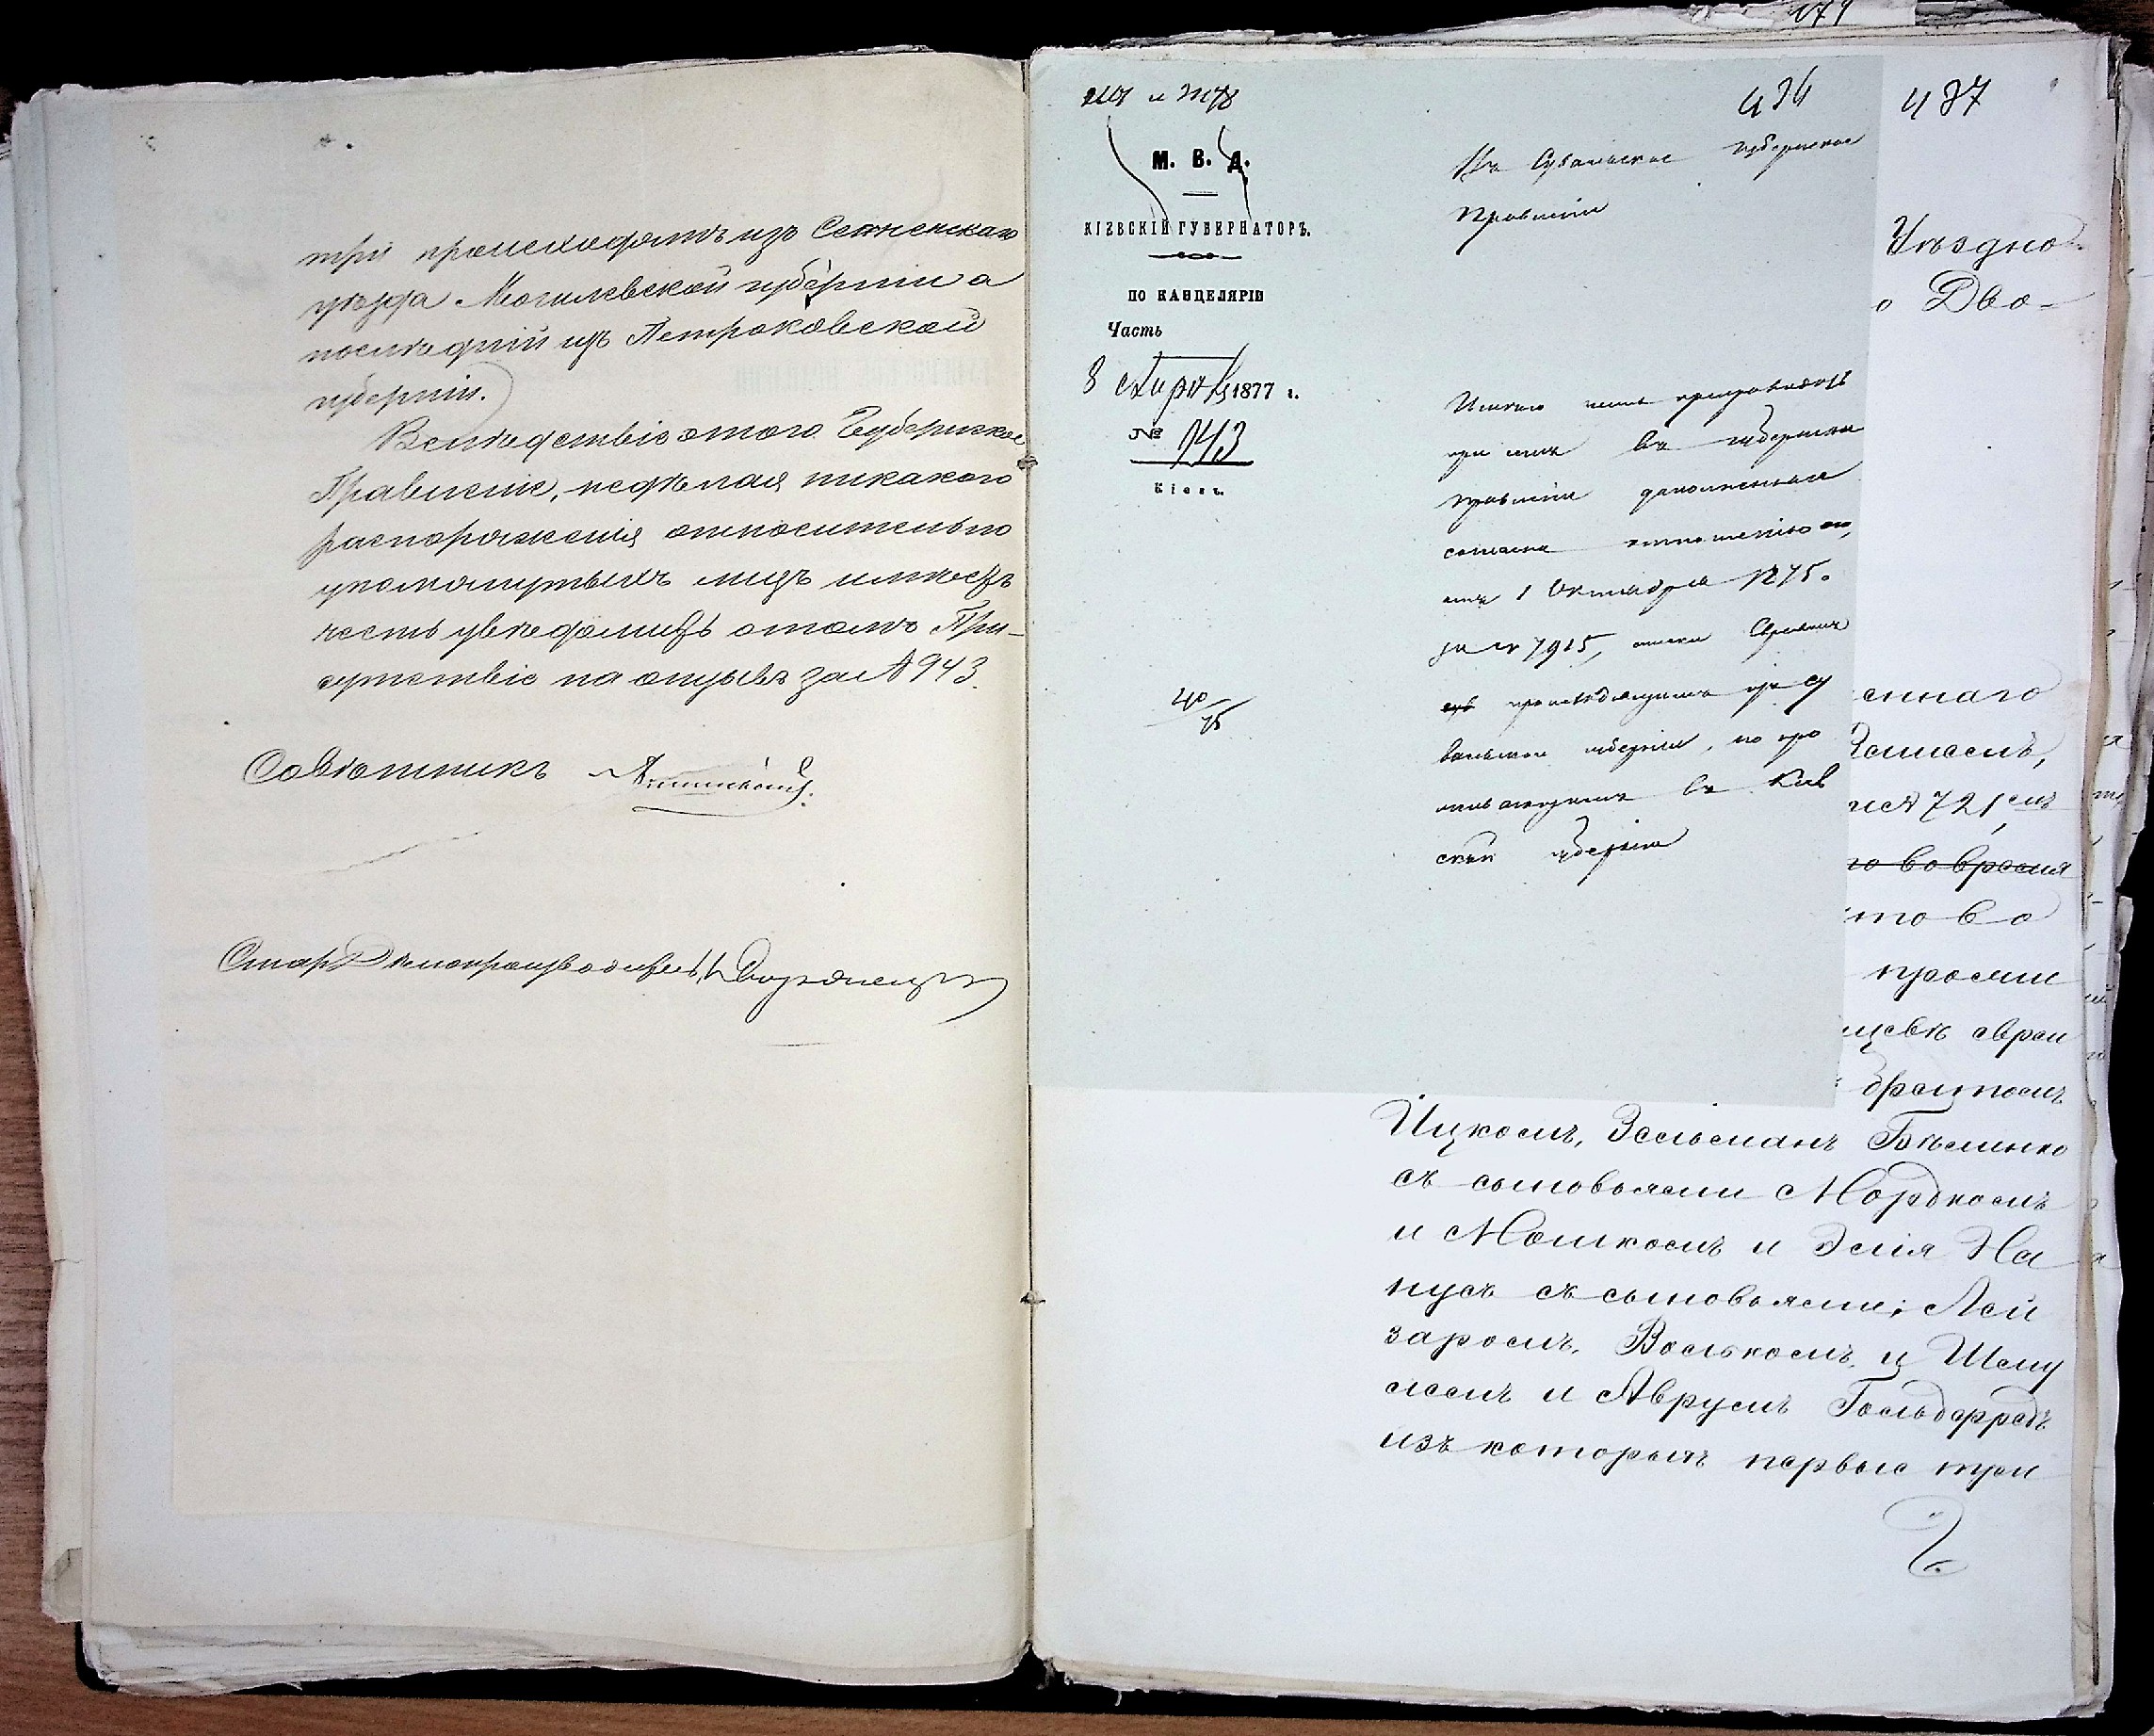 три происходятъ изъ Сенненскаго
уѣзда Могилевской губерніи а
послѣдній изъ Петроковской
губерніи.
Вслѣдствіе этого Губернское
Правленіе, недѣлая никакого
распоряженія относительно
упомянутыхъ лицъ имѣетъ
честь увѣдомить о томъ При-
сутствіе на отзывъ за № 943.
Совѣтникъ
Стар. Дѣлопроизводитель
436
М. В. Д.
КІЕВСКІЙ ГУБЕРНАТОРЪ.
ПО КАНЦЕЛЯРІИ
Часть
8 Апрѣля 1877 г.
№ 743
Кіевъ.
40/75
Въ Сувалкское Губернское
Правленіе
Имѣю честь препроводить
при семъ въ губернское
правленіе дополненные
согласно отношенію
отъ 1 Октября 1875.
за № 7915, списки Евреевъ
происходящихъ изъ Су
валкской губерніи, но про
живающихъ въ Кіев
ской губерніи
487
Уѣздно
о Дво-
еннаго
№ 721
го во время
просми
евреи
братомъ
Ицкомъ, Зельманъ
съ сыновьями Мордкомъ
и Мошкомъ и Элія Ха
нусъ съ сыновьями: Лей
заромъ, Волькомъ и Шму
лемъ и Аврумъ Гольдфредъ
изъ которыхъ первые три